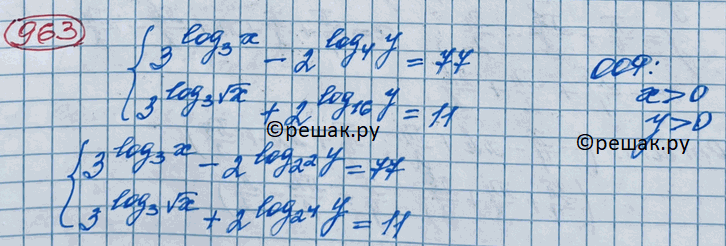 963
{ 3^{log_3 x} - 2^{log_4 y} = 77
3^{log_3 √x} + 2^{log_{16} y} = 11
ООФ:
x>0
y>0
©решак.ру
©решак.ру
{ 3^{log_3 x} - 2^{log_{2^2} y} = 77
3^{log_3 √x} + 2^{log_{2^4} y} = 11